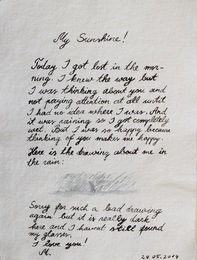 My Sunshine!
Today I got lost in the mor-
ning. I knew the way but
I was thinking about you and
not paying attention at all until
I had no idea where I was. And
it was raining so I got completely
wet. But I was so happy because
thinking of you makes me happy.
Here is the drawing about me in
the rain:
Sorry for such a bad drawing
again but it is really dark
here and I havent still found
my glasses.
I love you!
M.
29.05.2014